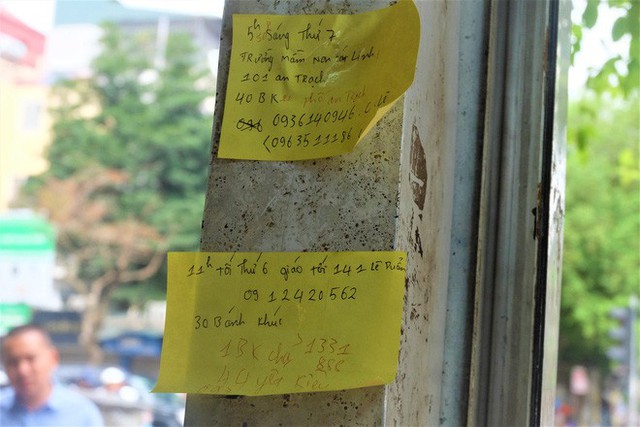 5h sáng thứ 7
Trường mầm non Linh
101 an Trạch
40 BK phố an Trạch
0936140946
(0963511186
11h tối thứ 6 giao tới 141 Lê Duẩn
0912420562
30 Bánh khúc
1 BK 1331
44 yên